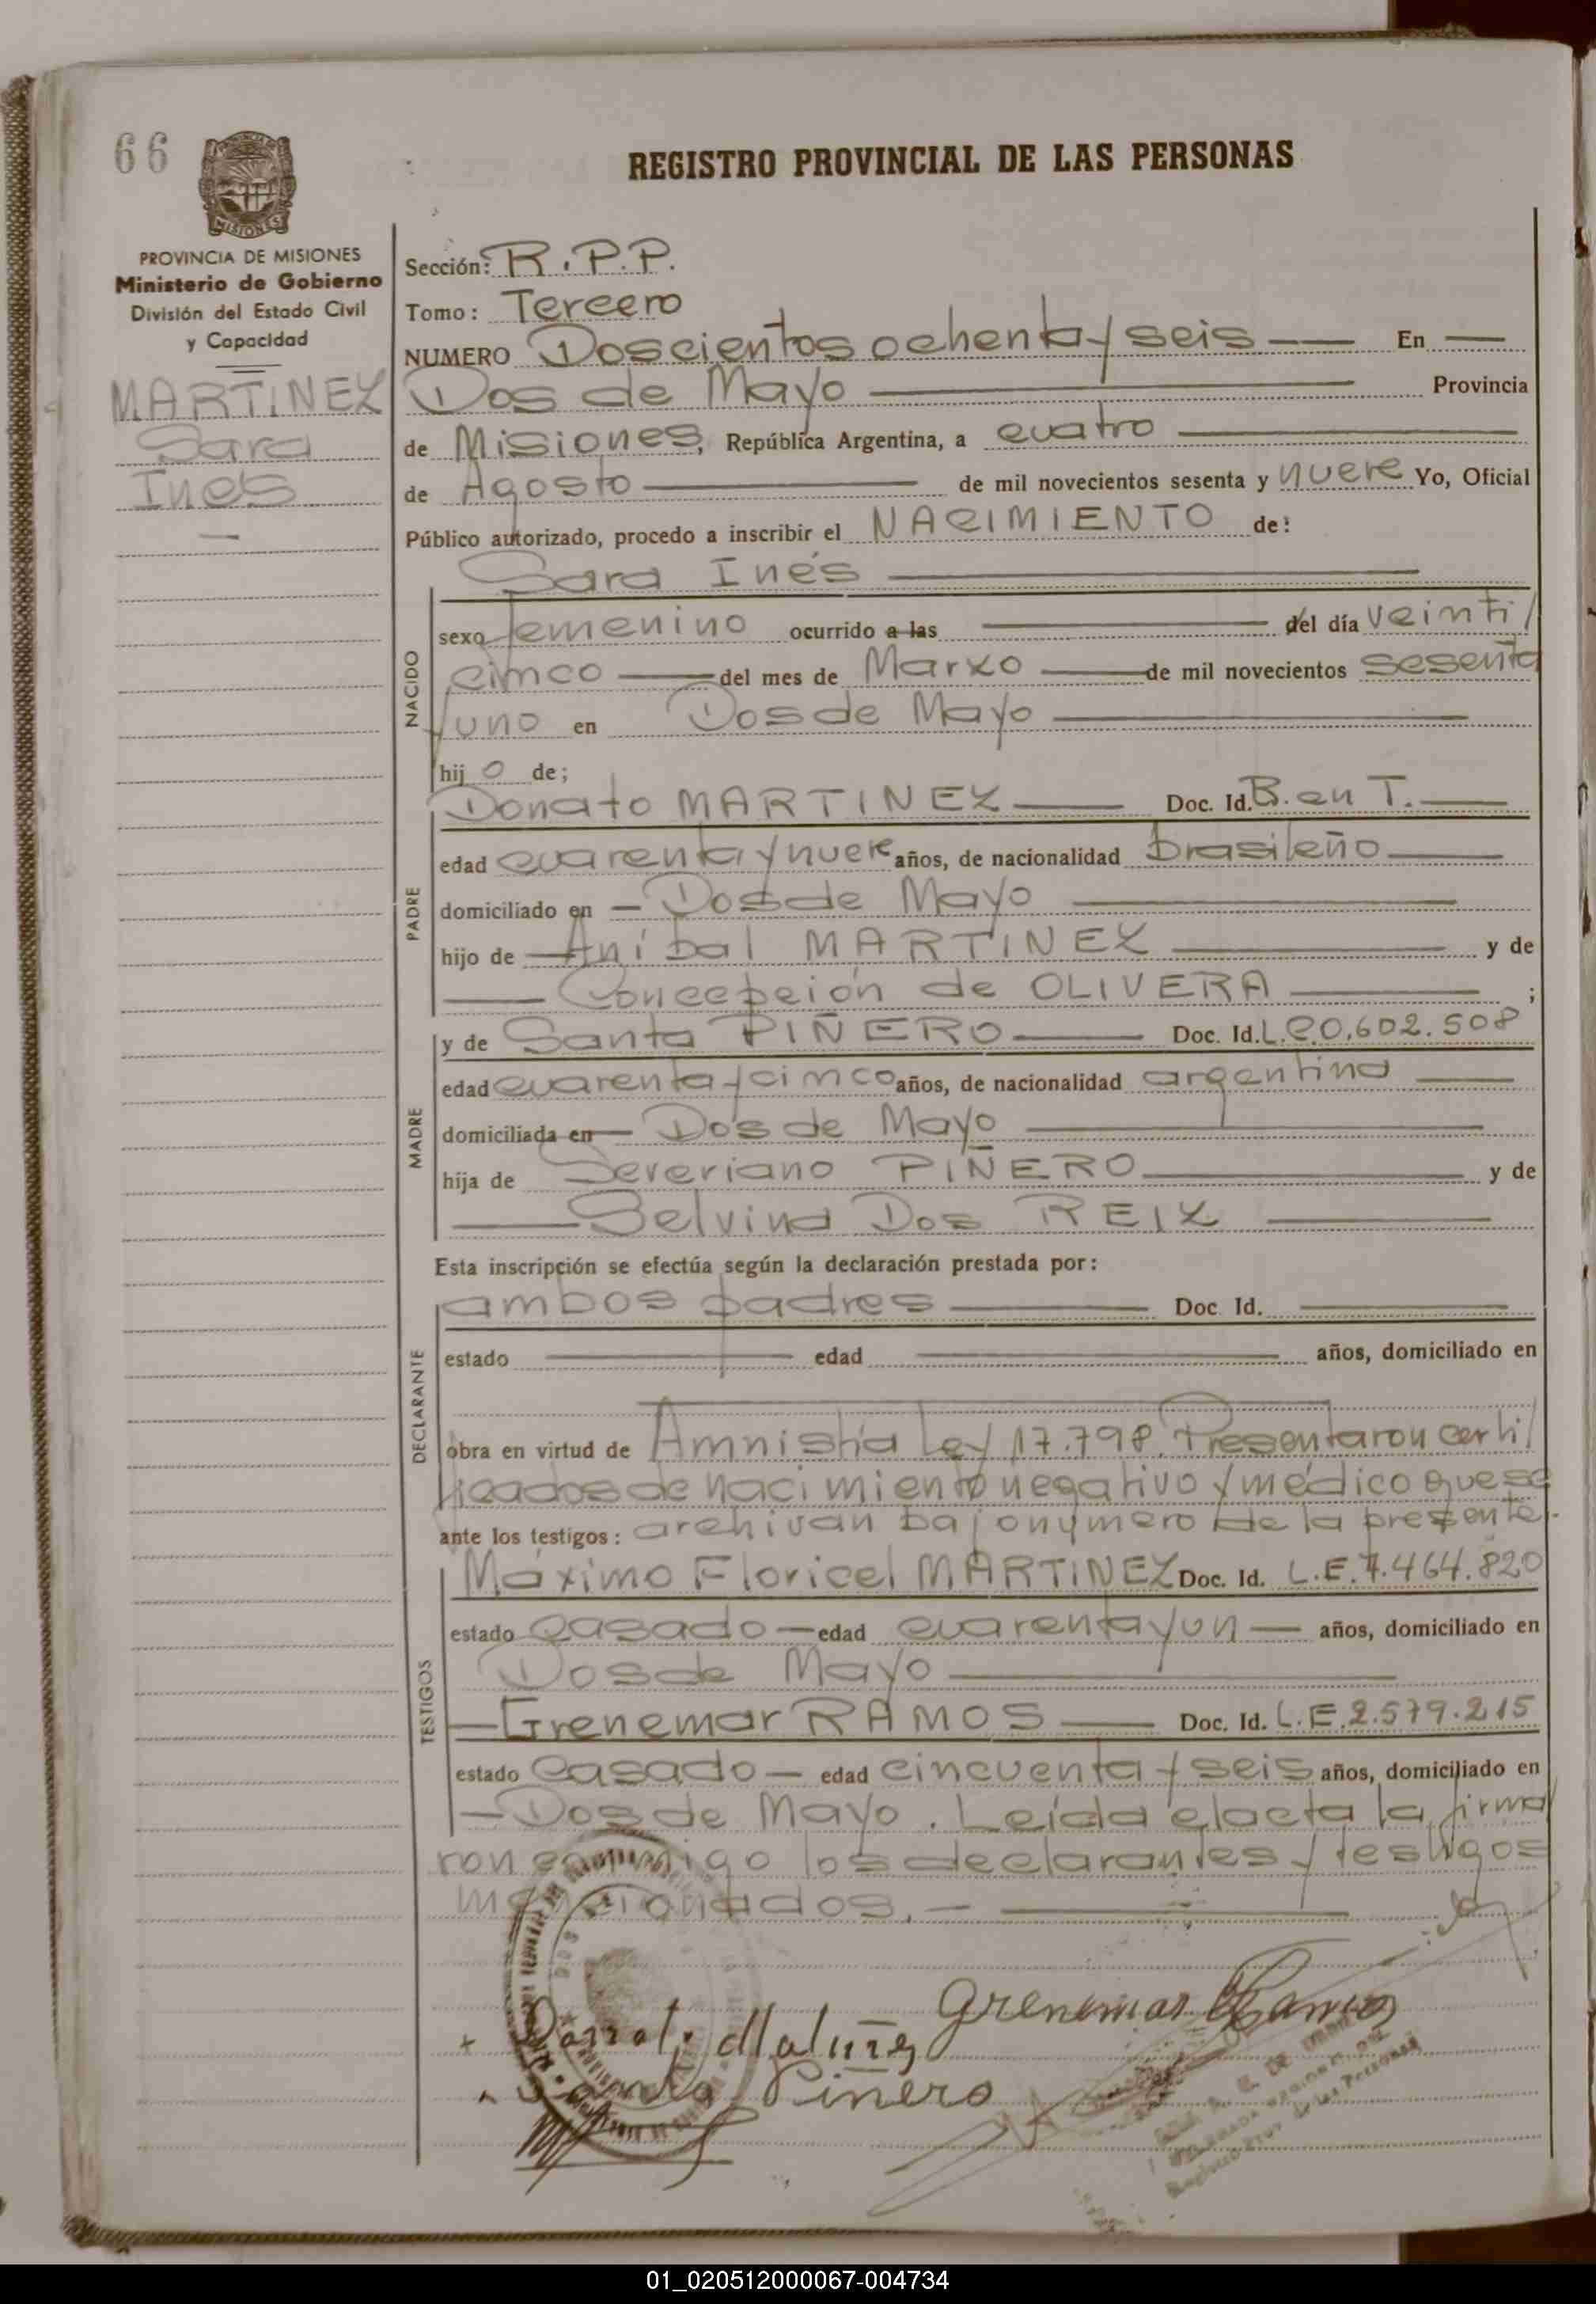 66
MISIONES
REGISTRO PROVINCIAL DE LAS PERSONAS
PROVINCIA DE MISIONES
Ministerio de Gobierno
División del Estado Civil
y Capacidad
MARTINEZ
Sara
Inés
Sección: R.P.P.
Tomo: Tercero
NUMERO Doscientos ochenta y seis — En —
Dos de Mayo — Provincia
de Misiones, República Argentina, a cuatro —
de Agosto — de mil novecientos sesenta y nueve Yo, Oficial
Público autorizado, procedo a inscribir el NACIMIENTO de:
Sara Inés —
NACIDO
sexo femenino ocurrido a las — del día veinti/
cinco — del mes de Marzo — de mil novecientos sesenta
y uno en Dos de Mayo —
hij o de;
Donato MARTINEZ — Doc. Id. B. en T. —
PADRE
edad cuarenta y nueve años, de nacionalidad brasileño —
domiciliado en — Dos de Mayo —
hijo de — Aníbal MARTINEZ — y de
— Concepción de OLIVERA — ;
y de Santa PIÑERO — Doc. Id. L.C.0.602.508
MADRE
edad cuarenta y cinco años, de nacionalidad argentina —
domiciliada en — Dos de Mayo —
hija de Severiano PIÑERO — y de
— Selvina Dos REIZ —
Esta inscripción se efectúa según la declaración prestada por:
ambos padres — Doc. Id. —
DECLARANTE
estado — edad — años, domiciliado en
—
obra en virtud de Amnistía Ley 17.798. Presentaron certi/
ficados de nacimiento negativo y médico que se
ante los testigos: archivan bajo número de la presente.-
Máximo Floricel MARTINEZ Doc. Id. L.E.7.464.820
TESTIGOS
estado casado — edad cuarenta y un — años, domiciliado en
Dos de Mayo —
— Grenemar RAMOS — Doc. Id. L.E.2.579.215
estado casado — edad cincuenta y seis años, domiciliado en
— Dos de Mayo. Leída el acta la firma/
ron conmigo los declarantes y testigos
mencionados.- —
Grenemar Ramos
+
Santa Piñero
01_020512000067-004734